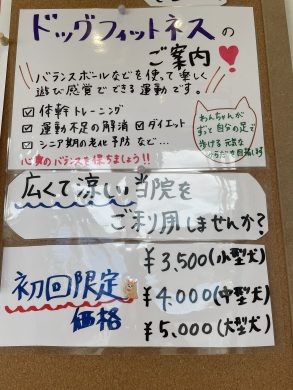 ドッグフィットネスの
ご案内
バランスボールなどを使って楽しく
遊び感覚でできる運動です。
☑ 体幹トレーニング
☑ 運動不足の解消 ☑ ダイエット
☑ シニア期の老化予防 など…
心身のバランスを保ちましょう!!
わんちゃんが
ずっと自分の足で
歩ける元気な
からだを目指します
広くて涼しい当院を
ご利用しませんか?
初回限定
価格
¥3,500(小型犬)
¥4,000(中型犬)
¥5,000(大型犬)